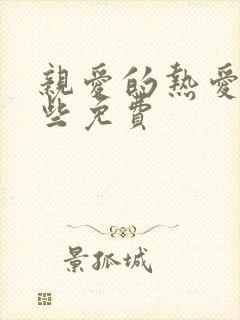 親愛的熱愛
些免費
景孤城